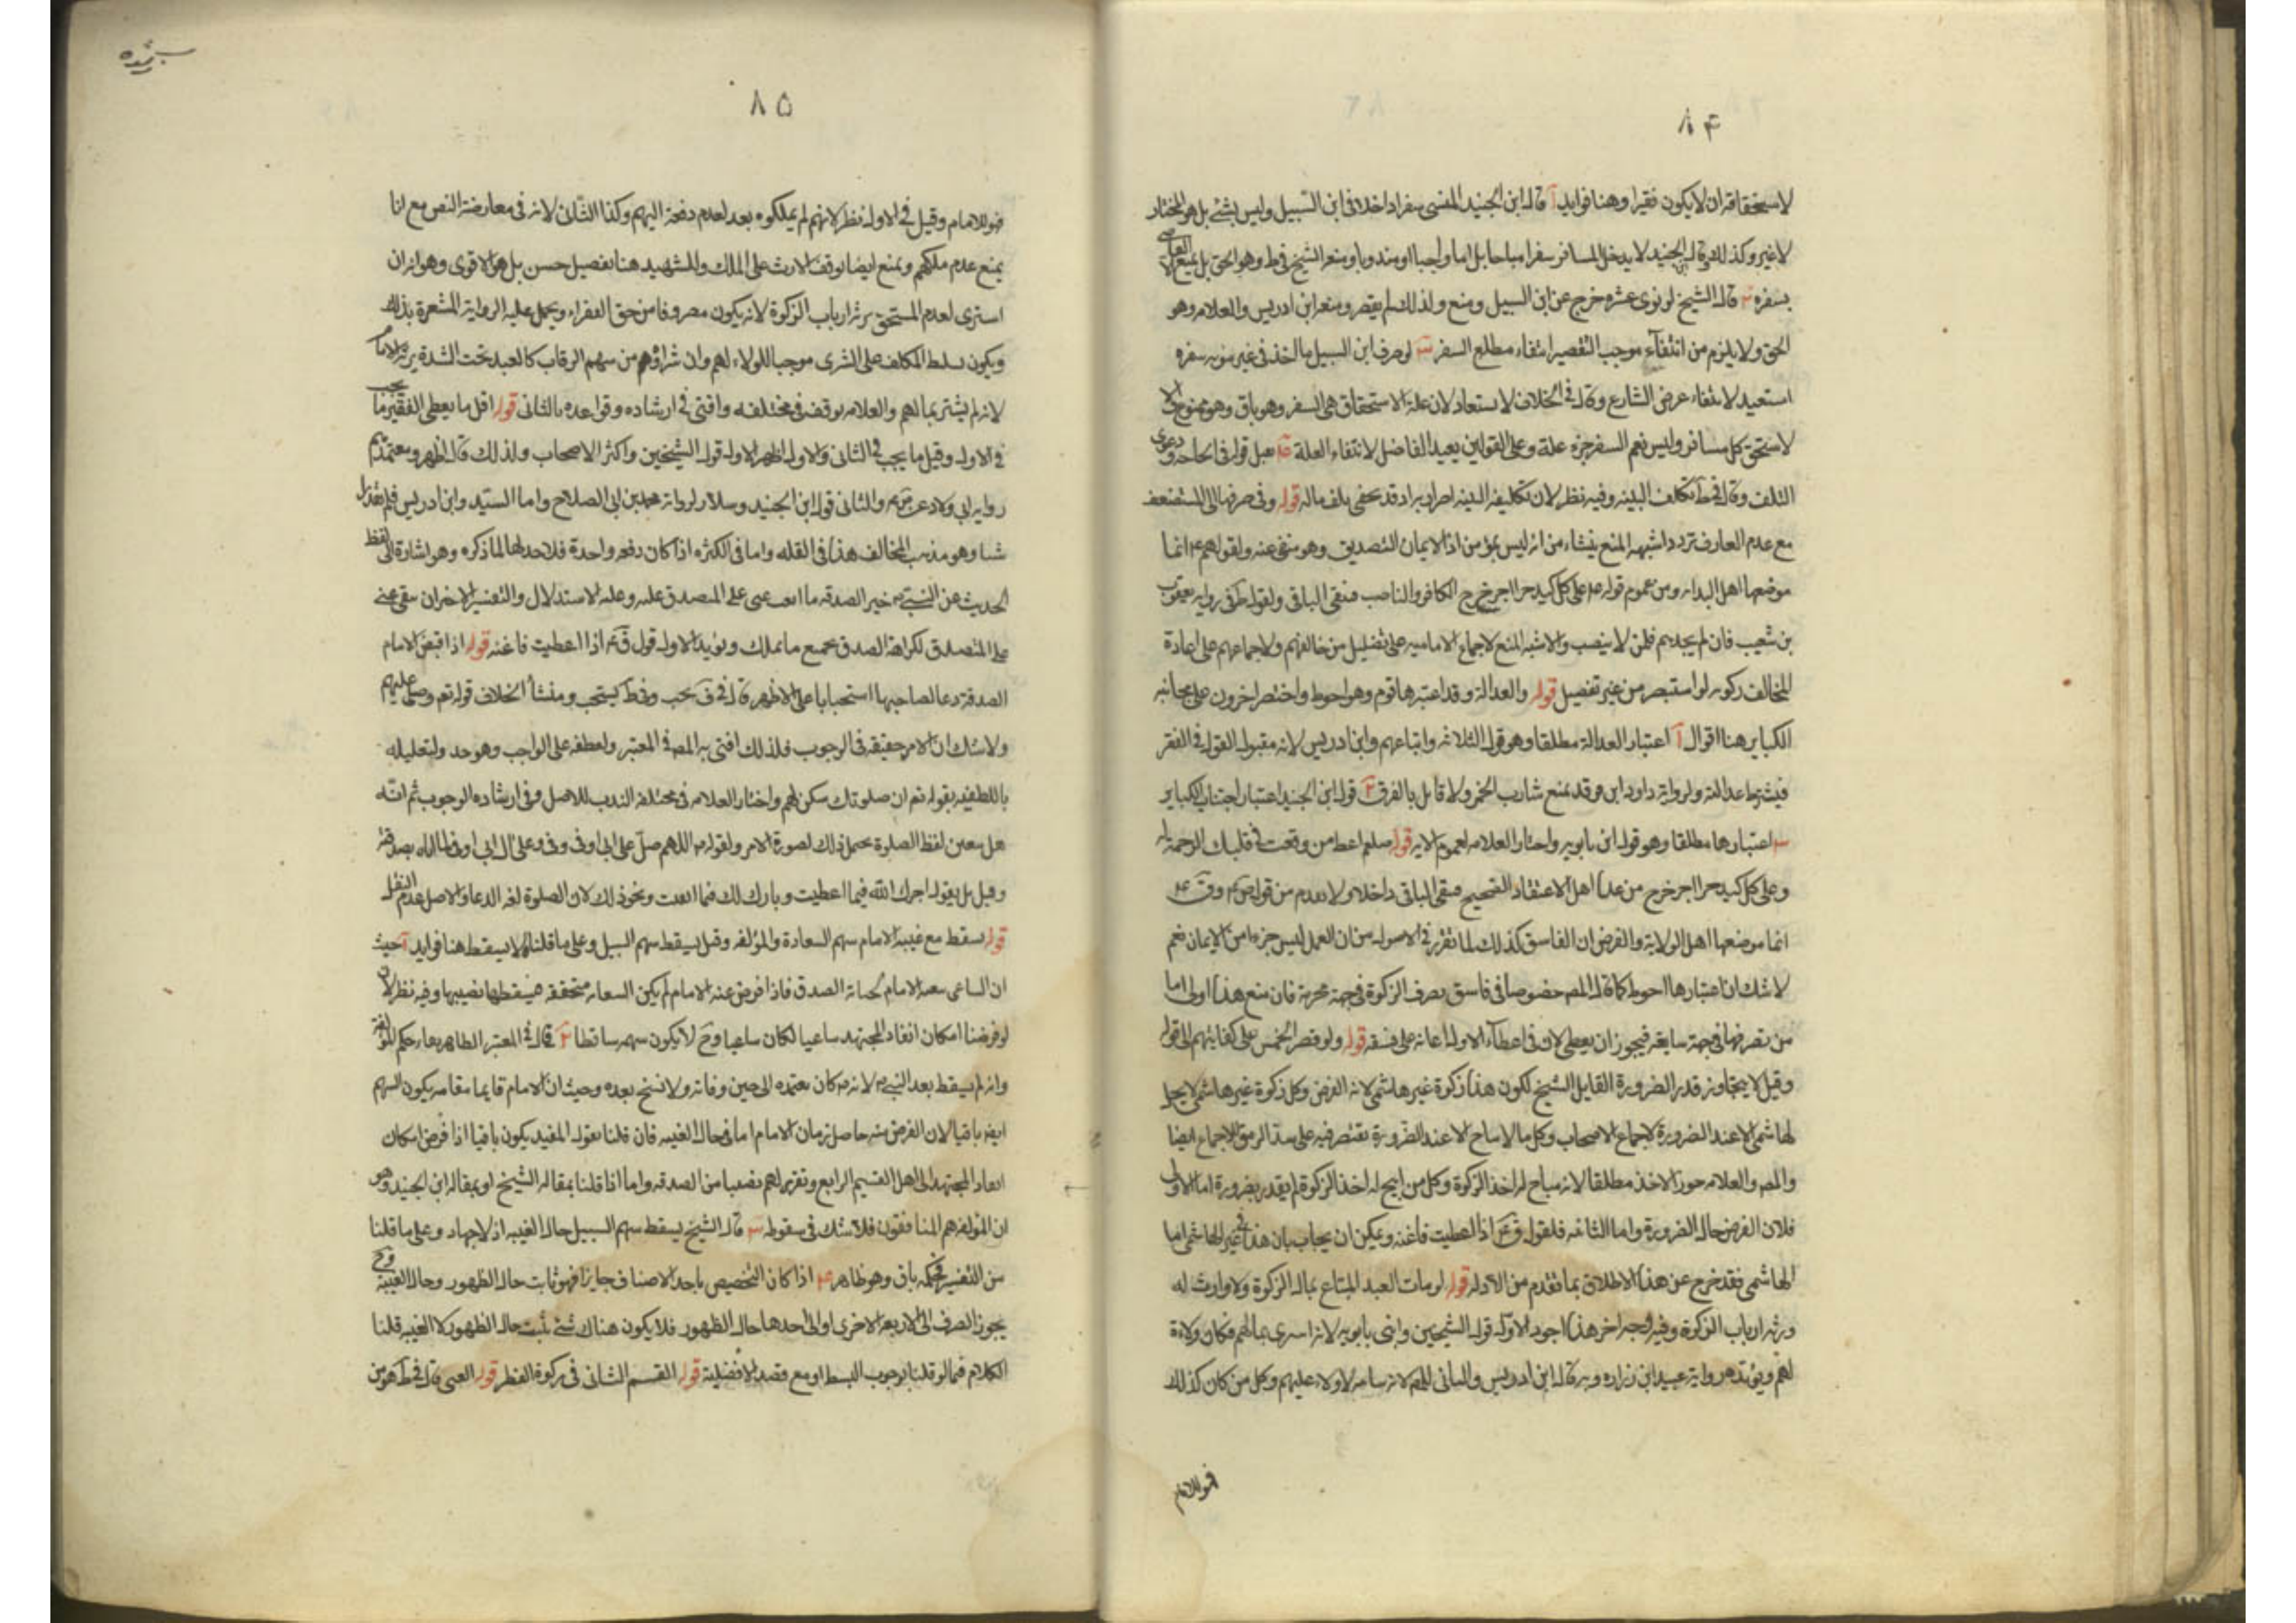 ٨۴
لاستحقاقه ان لا يكون فقيرا وهنا فوايد آ قال ابن الجنيد المنشى سفرا داخلا فى ابن السبيل وليس بشئ بل هو المختار
لا غير وكذلك قال ابن الجنيد لا يدخل المسافر سفرا مباحا بل اما واجبا او مندوبا ومنعه الشيخ فى ط وهو الحق بل يمنع العاصى
بسفره ٢ قال الشيخ لو نوى عشره خرج عن ابن السبيل ومنع ولذلك لم يقصر ومنعه ابن ادريس والعلامه وهو
الحق ولا يلزم من انتفاء موجب التقصير انتفاء مطلع السفر ٣ لو صرف ابن السبيل ما اخذ فى غير مئونه سفره
استعيد لانتفاء غرض الشارع وقال فى الخلاف لا يستعاد لان علة الاستحقاق هى السفر وهو باق وهو ممنوع والا
لاستحق كل مسافر وليس نعم السفر جزء علة وعلى القولين يعيد الفاضل لانتفاء العلة يقبل قوله فى الحاجه ودعوى
التلف وقال فى ط تكلف البينه وفيه نظر لان تكليفه البينه اضرار به اذ قد يخفى تلف ماله قوله وفى صرفها الى المستضعف
مع عدم العارف تردد اشبهه المنع ينشاء من انه ليس بمؤمن اذ الايمان التصديق وهو منفى عنه ولقولهم ع انما
موضعها اهل الولايه ومن عموم قوله ع على كل كبد حرا اجر خرج الكافر والناصب فبقى الباقى ولقوله فى روايه يعقوب
بن شعيب فان لم يجدهم فلمن لا ينصب والاشبه المنع لاجماع الاماميه على تضليل من خالفهم ولاجماعهم على اعادة
المخالف زكوته لو استبصر من غير تفصيل قوله والعدالة وقد اعتبرها قوم وهو احوط واقتصر اخرون على مجانبه
الكباير هنا اقوال آ اعتبار العدالة مطلقا وهو قول الثلاثه واتباعهم وابن ادريس لانه مقبول القول فى الفقر
فيشترط عدالته ولرواية داود ابن وقد بمنع شارب الخمر ولا قائل بالفرق ٢ قول ابن الجنيد اعتبار اجتناب الكباير
٣ اعتبارها مطلقا وهو قول ابن بابويه واختار العلامه لعموم الايه قوله صلعم اعط من وقعت فى قلبك الرحمة له
وعلى كل كبد حرا اجر خرج من عدا اهل الاعتقاد الصحيح فبقى الباقى داخلا ولا بعدم من قول ص م و ق ع
انما موضعها اهل الولاية والفرض ان الفاسق كذلك لما تقرر فى الاصول من ان العمل ليس جزءا من الايمان نعم
لا شك ان اعتبارها احوط كما قال المص خصوصا فى فاسق يصرف الزكوة فى جهة محرمة فان منع هذا اولى اما
من يصرفها فى جهة سايغه فيجوز ان يعطى لان فى اعطاء الاول اعانه على فسقه قوله ولو قصر الخمس على كفايتهم الى قوله
وقيل لا يتجاوز قدر الضرورة القايل الشيخ لكون هذا زكوة غير هاشمى لانه الفرض وكل زكوة غير هاشمى لا يحل
لهاشمى الا عند الضرورة لاجماع الاصحاب وكل ما لا يباح الا عند الضرورة يقتصر فيه على سد الرمق للاجماع ايضا
والمص والعلامه جوزا الاخذ مطلقا لانه مباح له اخذ الزكوة وكل من ابيح له اخذ الزكوة لم يقدر بضرورة اما الاولى
فلان الفرض حال الضرورة واما الثانيه فلقول ق ع اذا اعطيت فاغنه ويمكن ان يجاب بان هذا فى غير الهاشمى اما
الهاشمى فقد خرج عن هذا الاطلاق بما تقدم من الادله قوله لو مات العبد المبتاع بمال الزكوة ولا وارث له
ورثه ارباب الزكوة وفيه وجه اخر هذا اجود الاول قول الشيخين وابنى بابويه لانه اشترى بمالهم فكان ولاءه
لهم ويؤيده رواية عبيد ابن زراره وبه قال ابن ادريس والثانى للهم لانه سائبه لا ولاء عليهم وكل من كان كذلك
فهو للامام
٨۵
فهو للامام وقيل فى الاول نظر لانهم لم يملكوه بعد لعدم دفعه اليهم وكذا الثانى لانه فى معارضة النص مع انا
نمنع عدم ملكهم ونمنع ايضا توقف الارث على الملك وللشهيد هنا تفصيل حسن بل هو الاقوى وهو انه ان
اشترى لعدم المستحق يرثه ارباب الزكوة لانه يكون مصروفا من حق الفقراء ويحمل عليه الرواية المشعرة بذلك
ويكون تسلط المكلف على الشرى موجبا للولاء لهم وان شراؤهم من سهم الرقاب كالعبد تحت الشدة يرثه الامام
لانه لم يشتر بمالهم والعلامه توقف فى مختلفه وافتى فى ارشاده وقواعده بالثانى قوله اقل ما يعطى الفقير ما يجب
فى الاول وقيل ما يجب فى الثانى والاول اظهر الاول قول الشيخين واكثر الاصحاب ولذلك قال اظهر ومعتمدهم
روايه ابى ولاد عن ق ع والثانى قول ابن الجنيد وسلار لرواية محمد بن ابى الصلاح واما السيد وابن ادريس فلم يقدرا
شيئا وهو مذهب المخالف هذا فى القله واما فى الكثره اذا كان دفعه واحدة فلا حد لها لما ذكره وهو اشارة الى لفظ
الحديث عن النبى ص خير الصدقه ما ابقت غنى على المتصدق عليه وعليه الاستدلال والتفسير الاخر ان يبقى غنى
على المتصدق لكراهة الصدق بجميع ما يملك ويؤيد الاول قول ق ع اذا اعطيت فاغنه قوله اذا قبض الامام
الصدقة دعا لصاحبها استحبابا على الاظهر قال فى ف يجب وفى ط يستحب ومنشأ الخلاف قوله تعم وصل عليهم
ولا شك ان الامر حقيقه فى الوجوب فلذلك افتى به المص فى المعتبر ولعطفه على الواجب وهو خذ ولتعليله
باللطفيه بقوله تعم ان صلوتك سكن لهم واختار العلامه فى مختلفه الندب للاصل وفى ارشاده الوجوب ثم انه
هل يتعين لفظ الصلوة يحتمل ذلك لصورة الامر ولقوله ص اللهم صل على ابى اوفى وعلى ال ابى اوفى لما اتاه بصدقته
وقيل بل يقول اجرك الله فيما اعطيت وبارك لك فيما ابقيت ونحو ذلك لان الصلوة لغه الدعا والاصل عدم النقل
قوله يسقط مع غيبه الامام سهم السعادة والمؤلفه وقيل يسقط سهم السبيل وعلى ما قلناه لا يسقط هنا فوايد آ حيث
ان الساعى يبعثه الامام لجباية الصدق فاذا فرض غيبه الامام لم يكن السعايه متحققه فيسقط نصيبها وفيه نظر لان
لو فرضنا امكان انفاذ المجتهد ساعيا لكان ساعيا وح لا يكون سهمه ساقطا ٢ قال فى المعتبر الظاهر بقاء حكم المؤلفة
وانه لم يسقط بعد النبى ص لانه ص كان يعتمده الى حين وفاته ولا نسخ بعده وحيث ان الامام قايما مقامه يكون السهم
ايضا باقيا لان الفرض منه حاصل زمان الامام اما فى حال الغيبه فان قلنا بقول المفيد يكون باقيا اذا فرض امكان
انفاذ المجتهد الى اهل القسم الرابع وتقريره لهم نصيبا من الصدقه واما اذا قلنا بمقاله الشيخ او بمقاله ابن الجنيد وهو
ان المؤلفه هم المنافقون فلا شك فى سقوطه ٣ قال الشيخ يسقط سهم السبيل حال الغيبه اذ لا جهاد وعلى ما قلنا
من التفسير فحكمه باق وهو ظاهر ۴ اذا كان التخصيص باحد الاصناف جايزا فهو ثابت حال الظهور وحال الغيبة وح
يجوز الصرف الى الاربعه الاخرى او الى احدها حال الظهور فلا يكون هناك شئ يثبت حال الظهور لا الغيبه قلنا
الكلام فيما لو قلنا بوجوب البسط او مع قصد الافضلية قوله القسم الثانى فى زكوة الفطر قوله الغنى قال فى ط هو من